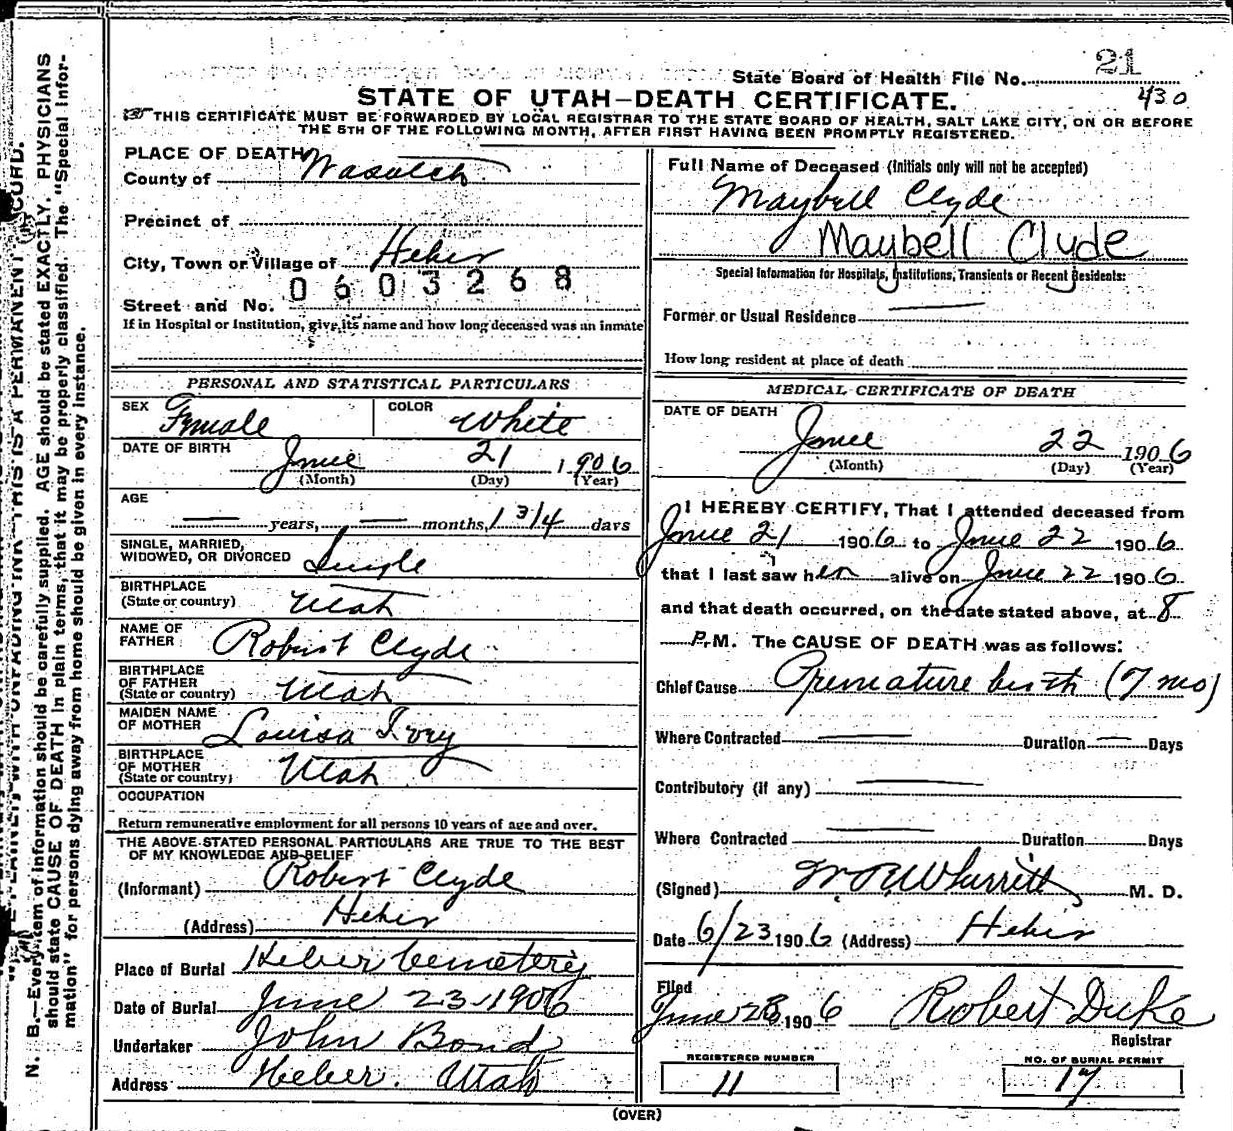 21
State Board of Health File No.
430
STATE OF UTAH—DEATH CERTIFICATE.
THIS CERTIFICATE MUST BE FORWARDED BY LOCAL REGISTRAR TO THE STATE BOARD OF HEALTH, SALT LAKE CITY, ON OR BEFORE
THE 5TH OF THE FOLLOWING MONTH, AFTER FIRST HAVING BEEN PROMPTLY REGISTERED.
PLACE OF DEATH
County of Wasatch
Precinct of
City, Town or Village of Heber
0603268
Street and No.
If in Hospital or Institution, give its name and how long deceased was an inmate
PERSONAL AND STATISTICAL PARTICULARS
SEX Female COLOR White
DATE OF BIRTH June 21 1906
(Month) (Day) (Year)
AGE
— years, — months, 1 3/4 days
SINGLE, MARRIED,
WIDOWED, OR DIVORCED Single
BIRTHPLACE
(State or country) Utah
NAME OF
FATHER Robert Clyde
BIRTHPLACE
OF FATHER
(State or country) Utah
MAIDEN NAME
OF MOTHER Louisa Ivory
BIRTHPLACE
OF MOTHER
(State or country) Utah
OCCUPATION
Return remunerative employment for all persons 10 years of age and over.
THE ABOVE STATED PERSONAL PARTICULARS ARE TRUE TO THE BEST
OF MY KNOWLEDGE AND BELIEF
(Informant) Robert Clyde
(Address) Heber
Place of Burial Heber Cemetery
Date of Burial June 23 1906
Undertaker John Bond
Address Heber. Utah
Full Name of Deceased (Initials only will not be accepted)
Maybell Clyde
Maybell Clyde
Special Information for Hospitals, Institutions, Transients or Recent Residents:
Former or Usual Residence —
How long resident at place of death
MEDICAL CERTIFICATE OF DEATH
DATE OF DEATH
June 22 1906
(Month) (Day) (Year)
I HEREBY CERTIFY, That I attended deceased from
June 21 1906 to June 22 1906
that I last saw her alive on June 22 1906
and that death occurred, on the date stated above, at 8
P.M. The CAUSE OF DEATH was as follows:
Chief Cause Premature birth (7 mo)
Where Contracted — Duration — Days
Contributory (if any) —
Where Contracted — Duration Days
(Signed) M. D.
Date 6/23 1906 (Address) Heber
Filed
June 1906 Robert Duke
Registrar
REGISTERED NUMBER NO. OF BURIAL PERMIT
11 17
(OVER)
N. B.—Every item of information should be carefully supplied. AGE should be stated EXACTLY. PHYSICIANS
should state CAUSE OF DEATH in plain terms, that it may be properly classified. The "Special Infor-
mation" for persons dying away from home should be given in every instance.
WITH UNFADING INK—THIS IS A PERMANENT RECORD.